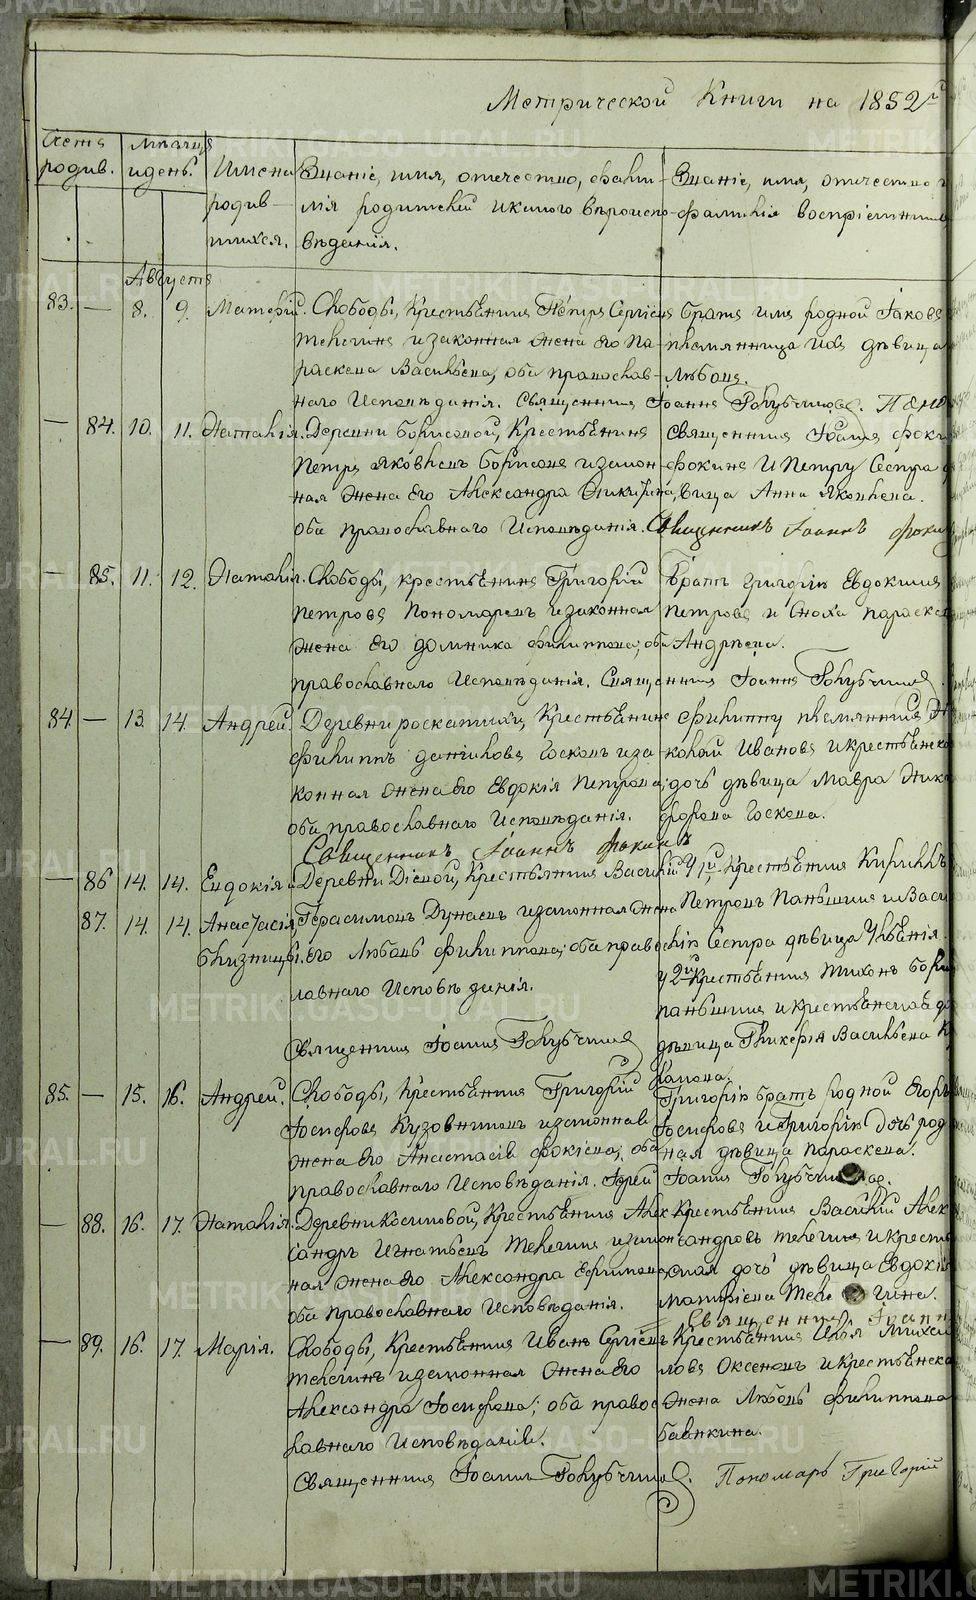 Метрической Книги на 1852й
Счетъ родив.
Мѣсяцъ и день.
Имена родив-шихся.
Званіе, имя, отечество, фами-
лія родителей и какого вѣроиспо-
вѣданія.
Званіе, имя, отечество и
фамилія воспріемник
Августъ
83. — 8. 9. Матѳей. Слободы, Крестьянинъ Петръ Сергѣевъ
Телегинъ и законная жена его Па-
раскева Васильева, оба православ-
наго Исповѣданія. Священникъ Іоаннъ Голубчиковъ.
братъ родной Іаковъ
племянница дѣвица
Любовь.
— 84. 10. 11. Наталія. Деревни Борисовой, Крестьянинъ
Петръ Яковлевъ Борисовъ и закон-
ная жена его Александра Никифо
оба православнаго Исповѣданія. Священникъ Іоаннъ Фокин
Священникъ Іоаннъ Фоки
Фокинъ и Петру Сестра д
вица Анна Яковлева.
— 85. 11. 12. Наталія. Слободы, крестьянинъ Григорій
Петровъ Пономаревъ и законная
жена его Домника Филиппова; оба
православнаго Исповѣданія. Священникъ Іоаннъ Голубчиковъ.
братъ Григорія Евдокимъ
Петровъ и Сноха Параске
Андрѣева.
84 — 13. 14. Андрей. Деревни Роскатихи, Крестьянинъ
Филиппъ Даниловъ Госковъ и за-
конная жена его Евдокія Петрова;
оба православнаго Исповѣданія.
Священникъ Іоаннъ Фокинъ
Филиппу племянникъ Ни
колай Ивановъ и крестьянска
дочь дѣвица Мавра Ники
форова Госкова.
— 86 14. 14. Евдокія и Деревни Дiевой, Крестьянинъ Василій
87. 14. 14. Анастасія, Герасимовъ Дунаевъ и законная жена
близницы. его Любовь Филиппова; оба правос
лавнаго Исповѣданія.
Священникъ Іоаннъ Голубчиковъ
У 1й, Крестьянинъ Кириллъ
Петровъ Паньшинъ и Васи
лія Сестра дѣвица Ульянія.
У 2й Крестьянинъ Тихонъ
Паньшинъ и крестьянская до
дѣвица Гликерія Васильева
85. — 15. 16. Андрей. Слободы, Крестьянинъ Григорій
Іосифовъ Кузовниковъ и законная
жена его Анастасія Фокіева; оба
православнаго Исповѣданія. Іерей Іоаннъ Голубчиковъ.
Григорія братъ родной Егоръ
Іосифовъ и Григорія дочь род
ная дѣвица Параскева.
— 88. 16. 17. Наталія. Деревни Косиковой, Крестьянинъ Алек
сандръ Игнатьевъ Телегинъ и закон
ная жена его Александра Ефимова
оба православнаго Исповѣданія.
Крестьянинъ Василій Алек
сандровъ Телегинъ и кресть
янская дочь дѣвица Евдокія
Матфіева Теле гина.
Священникъ Іоанн
— 89. 16. 17. Марія. Слободы, Крестьянинъ Иванъ Сергѣевъ
Телегинъ и законная жена его
Александра Іосифова; оба правос
лавнаго Исповѣданія.
Крестьянинъ Илья Михаи
ловъ Оксеновъ и крестьянска
жена Любовь Филиппова
Бабкина.
Священникъ Іоаннъ Голубчиковъ. Пономарь Григорій
METRIKI.GASO-URAL.RU